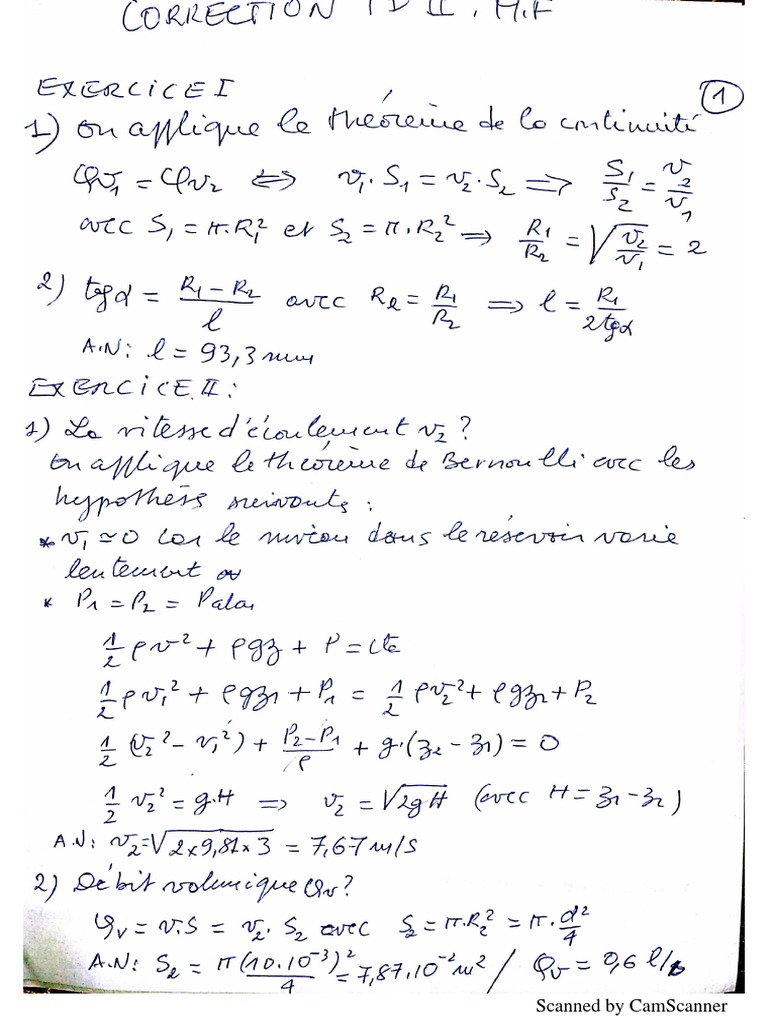 CORRECTION TD II. M.F
EXERCICE I
1
1) On applique le théorème de la continuité
φv₁ = φv₂ ⇔ v₁.S₁ = v₂.S₂ ⇒ S₁/S₂ = v₂/v₁
avec S₁ = π.R₁² et S₂ = π.R₂² ⇒ R₁/R₂ = √(v₂/v₁) = 2
2) tgα = (R₁ - R₂)/l avec R₂ = R₁/R₂ ⇒ l = R₁/2tgα
A.N: l = 93,3 mm
EXERCICE II:
1) La vitesse d'écoulement v₂?
On applique le théorème de Bernoulli avec les
hypothès suivants:
* v₁ ≃ 0 car le niveau dans le réservoir varie
lentement
* P₁ = P₂ =
½ρv² + ρgz + P = cte
½ρv₁² + ρgz₁ + P₁ = ½ρv₂² + ρgz₂ + P₂
½(v₂² - v₁²) + (P₂-P₁)/ρ + g.(z₂ - z₁) = 0
½v₂² = g.H ⇒ v₂ = √2gH (avec H = z₁ - z₂)
A.N: v₂ = √(2×9,81×3) = 7,67 m/s
2) Débit volumique Qv?
φv = v.S = v₂.S₂ avec S₂ = π.R₂² = π.d²/4
A.N: S₂ = π(10.10⁻³)²/4 = 7,87.10⁻² m² / φv = 0,6 l/s
Scanned by CamScanner